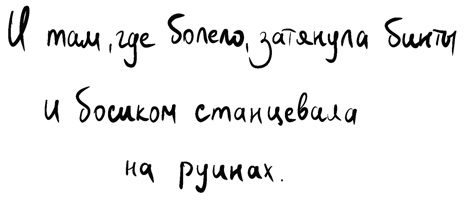 И там, где болело, затянула бинты
и босиком станцевала
на руинах.